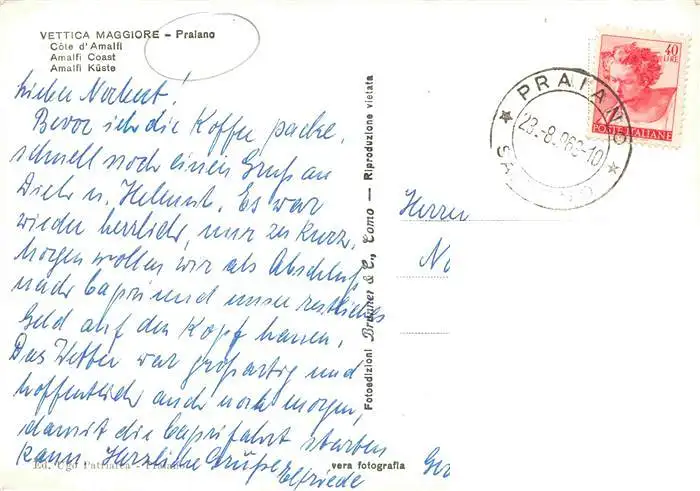 VETTICA MAGGIORE – Praiano
Côte d'Amalfi
Amalfi Coast
Amalfi Küste
Lieber Norbert!
Bevor ich die Koffer packe,
schnell noch einen Gruß an
Dich u. Helmut. Es war
wieder herrlich, nur zu kurz.
Morgen wollen wir als Abschluß
nach Capri und unser restliches
Geld auf den Kopf hauen.
Das Wetter war großartig und
hoffentlich auch noch morgen,
damit die Caprifahrt starten
kann. Herzliche Grüße
Elfriede
Ed. Ugo
vera fotografia
Fotoedizioni Brunner & C., Como — Riproduzione vietata
40
LIRE
POSTE ITALIANE
PRAIANO
23.-8.
Herrn
No
Ger